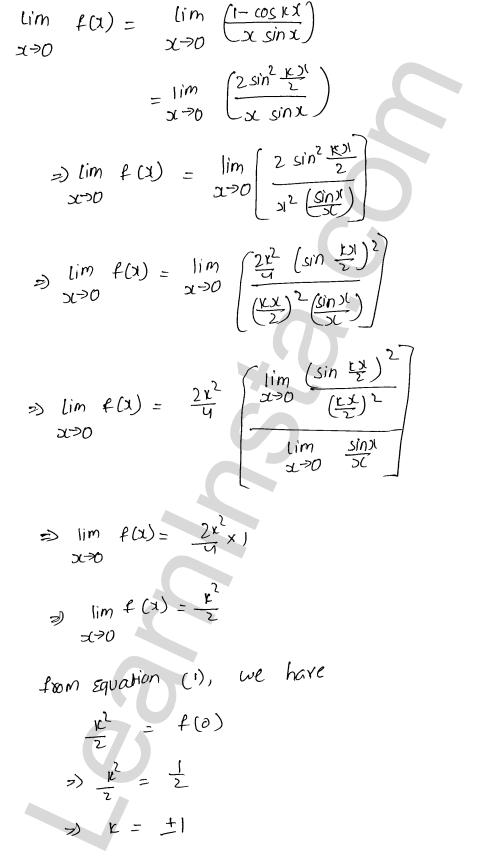 lim x→0 f(x) = lim x→0 ((1 - cos kx)/(x sin x))
= lim x→0 ((2 sin² kx/2)/(x sin x))
⇒ lim x→0 f(x) = lim x→0 [(2 sin² kx/2)/(x² (sin x/x))]
⇒ lim x→0 f(x) = lim x→0 [(2k²/4 (sin kx/2)²)/((kx/2)² (sin x/x))]
⇒ lim x→0 f(x) = 2k²/4 [(lim x→0 (sin kx/2)²/(kx/2)²)/(lim x→0 sin x/x)]
⇒ lim x→0 f(x) = 2k²/4 × 1
⇒ lim x→0 f(x) = k²/2
from equation (1), we have
k²/2 = f(0)
⇒ k²/2 = 1/2
⇒ k = ±1
LearnInsta.com